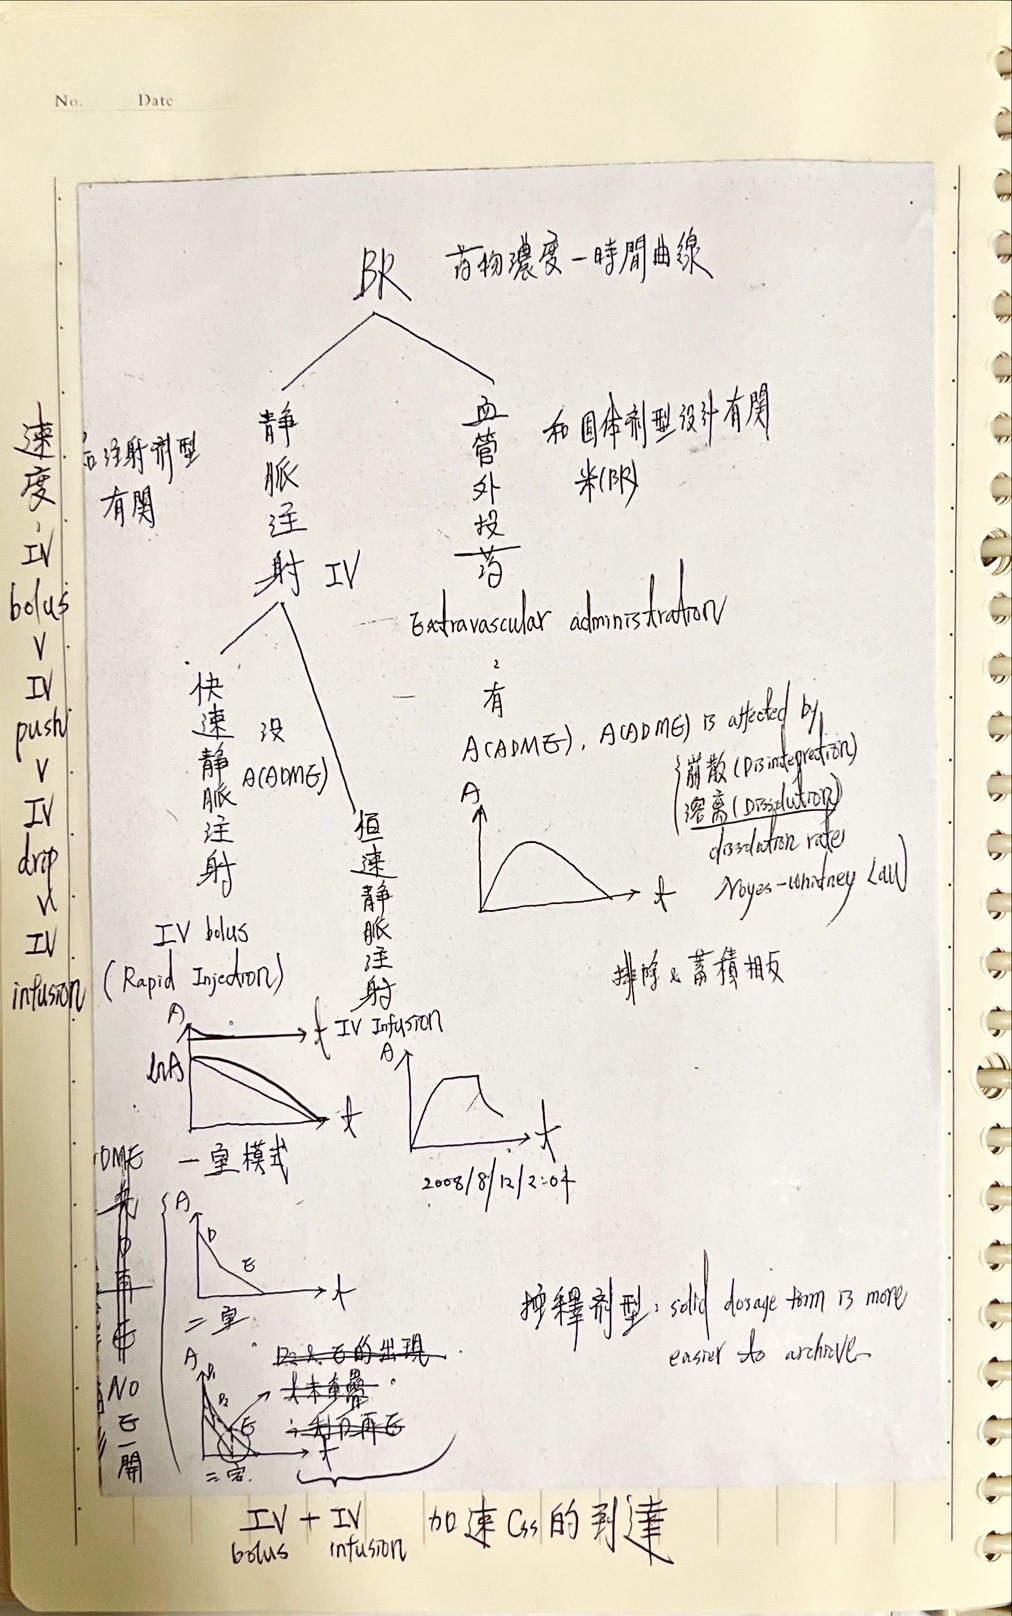 No. Date
BR 药物濃度-時間曲線
速度:
IV
bolus
V
IV
push
V
IV
drip
V
IV
infusion
注射剂型
有関
静脈注射 IV
血管外投药
和固体剂型設计有関
米(BR)
Extravascular administration
:
有
A(ADME), A(ADME) is affected by
崩散(Disintegretion)
溶离(Dissolution)
dissolution rate
Noyes-whitney Law
快速静脈注射
没
A(ADME)
IV bolus
(Rapid Injection)
恒速静脈注射
IV Infusion
A
t
排除&蓄積相反
A
t
lnA
t
一室模式
A
t
2008/8/12/2:04
DME
先
D
再
E
NO
E
開
A
D
E
t
二室
A
P1
P2
E
t
三室
E的出現
未重疊
再E
控釋剂型: solid dosage form is more
easier to archieve
IV + IV 加速Css的到達
bolus infusion